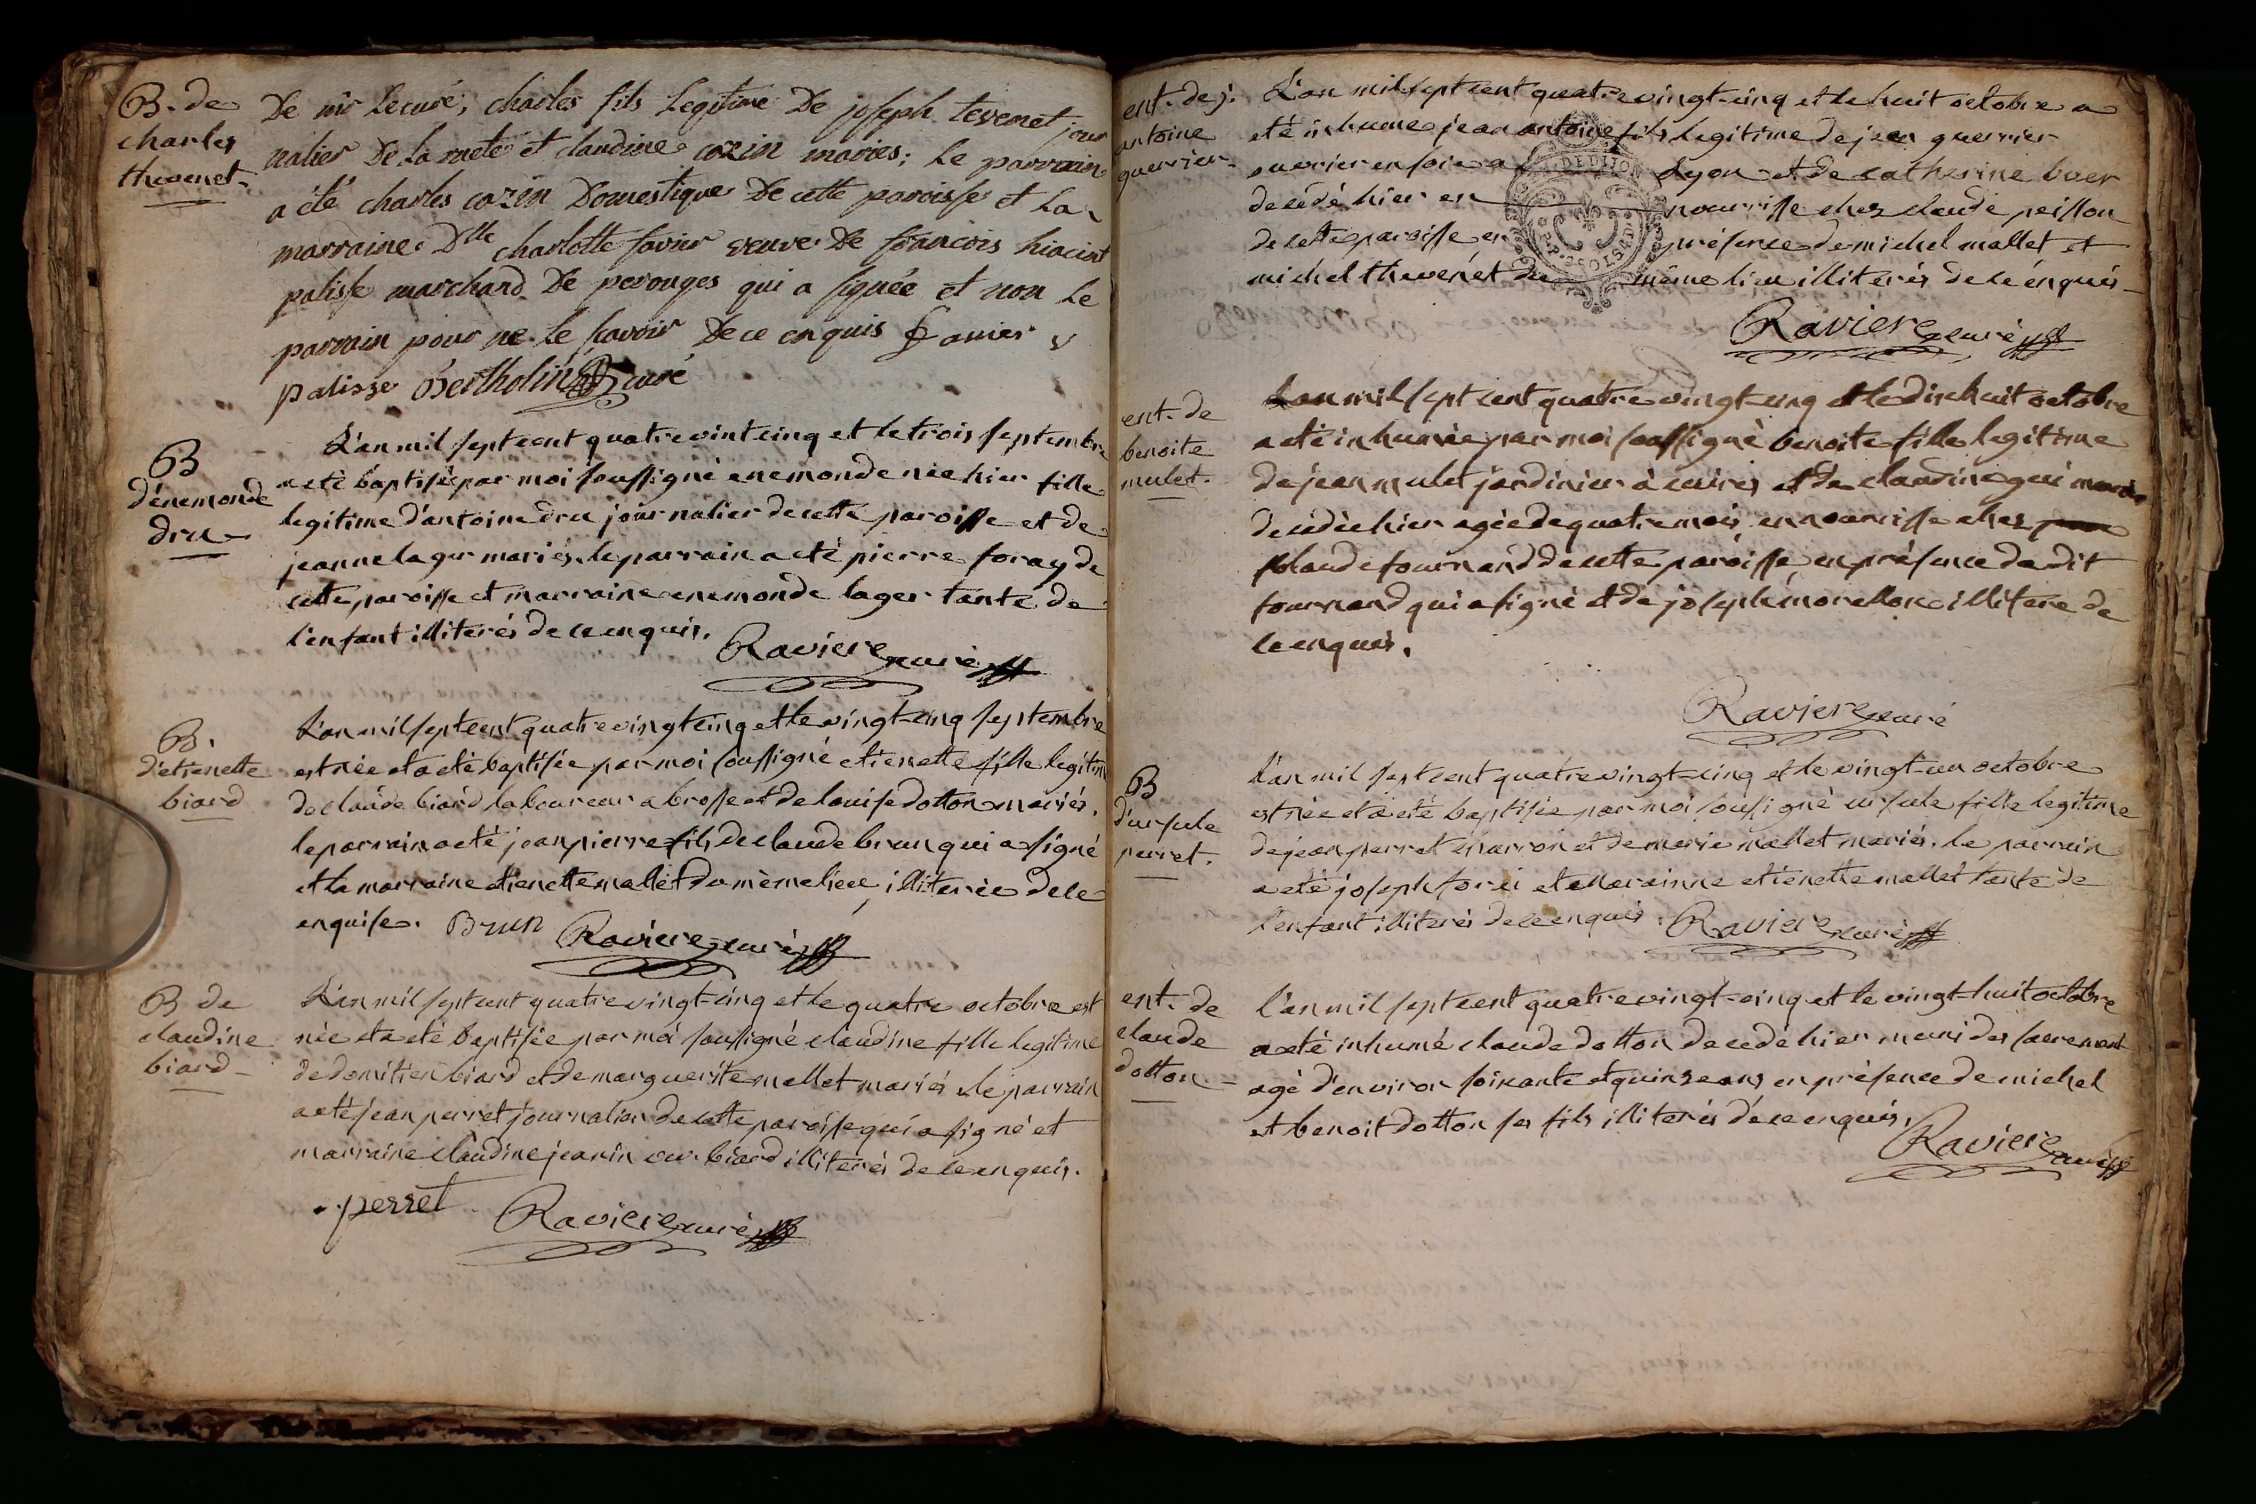 B. de
charles
thevenet.
De mr le curé, charles fils Legitime De joseph tevenet jour
nalier De La ruete et claudine cozin maries; Le parrain
a été charles cozin Domestique De cette paroisse et La
marraine Dlle charlotte favier veuve De francois hiacint
palisse marchand De perouges qui a signée et non Le
parrain pour ne Le scavoir De ce enquis favier v
palisse Bertholin curé
B
d'enemonde
dru
L'an mil sept cent quatre vint cinq et le trois septembre
a eté baptisée par moi soussigné enemonde née hier fille
legitime d'antoine dru journalier de cette paroisse et de
jeanne lager mariés. le parrain a eté pierre foray de
cette paroisse et marraine enemonde lager tante de
l'enfant illiterés de ce enquis.
Raviere curé
B.
d'etienette
biard
L'an mil sept cent quatre vingt cinq et le vingt-cinq septembre
est née et a eté baptisée par moi soussigné etienette fille legitim
de claude biard laboureur a brosse et de louise dotton mariés.
le parrain a eté jean pierre fils de claude brun qui a signé
et la marraine etienette mallet du même lieu, illiterée de ce
enquise. Brun Raviere curé
B de
claudine
biard
L'an mil sept cent quatre vingt-cinq et le quatre octobre est
née et a eté baptisée par moi soussigné claudine fille legitime
de domitien biard et de marguerite mallet mariés. le parrain
a eté jean perret journalier de cette paroisse qui a signé et
marraine claudine jeanin veu. biard illiterés de ce enquis.
perret Raviere curé
ent. de j.
antoine
guerrier
L'an mil sept cent quatre vingt-cinq et le huit octobre a
eté inhume jean antoine fils legitime de jean guerrier
ouvrier en soie a Lyon et de catherine buer
decédé hier en nourrisse chez claude peisson
de cette paroisse en présence de michel mallet et
michel thevenet du même lieu illiterés de ce énquis
Raviere curé
ent. de
benoite
mulet.
L'an mil sept cent quatre vingt-cinq et le dixhuit octobre
a eté inhumée par moi soussigné benoite fille legitime
de jean mulet jardinier à cuires et de claudine gui mariés
decédée hier agée de quatre mois en nourrisse chez
claude fournand de cette paroisse, en présence du dit
fournand qui a signé et de joseph morellon illiteré de
ce enquis.
Raviere curé
B
d'ursule
perret.
L'an mil sept cent quatre vingt-cinq et le vingt-un octobre
est née et a eté baptisée par moi soussigné ursule fille legitime
de jean perret et de marie mallet mariés. le parrain
a eté joseph forei et marainne etienette mallet tante de
l'enfant illiterés de ce enquis. Raviere curé
ent. de
claude
dotton
L'an mil sept cent quatre vingt-cinq et le vingt-huit octobre
a eté inhumé claude dotton decedé hier muni des sacrement
agé d'environ soixante et quinze ans en présence de michel
et benoit dotton ses fils illiterés de ce enquis.
Raviere curé